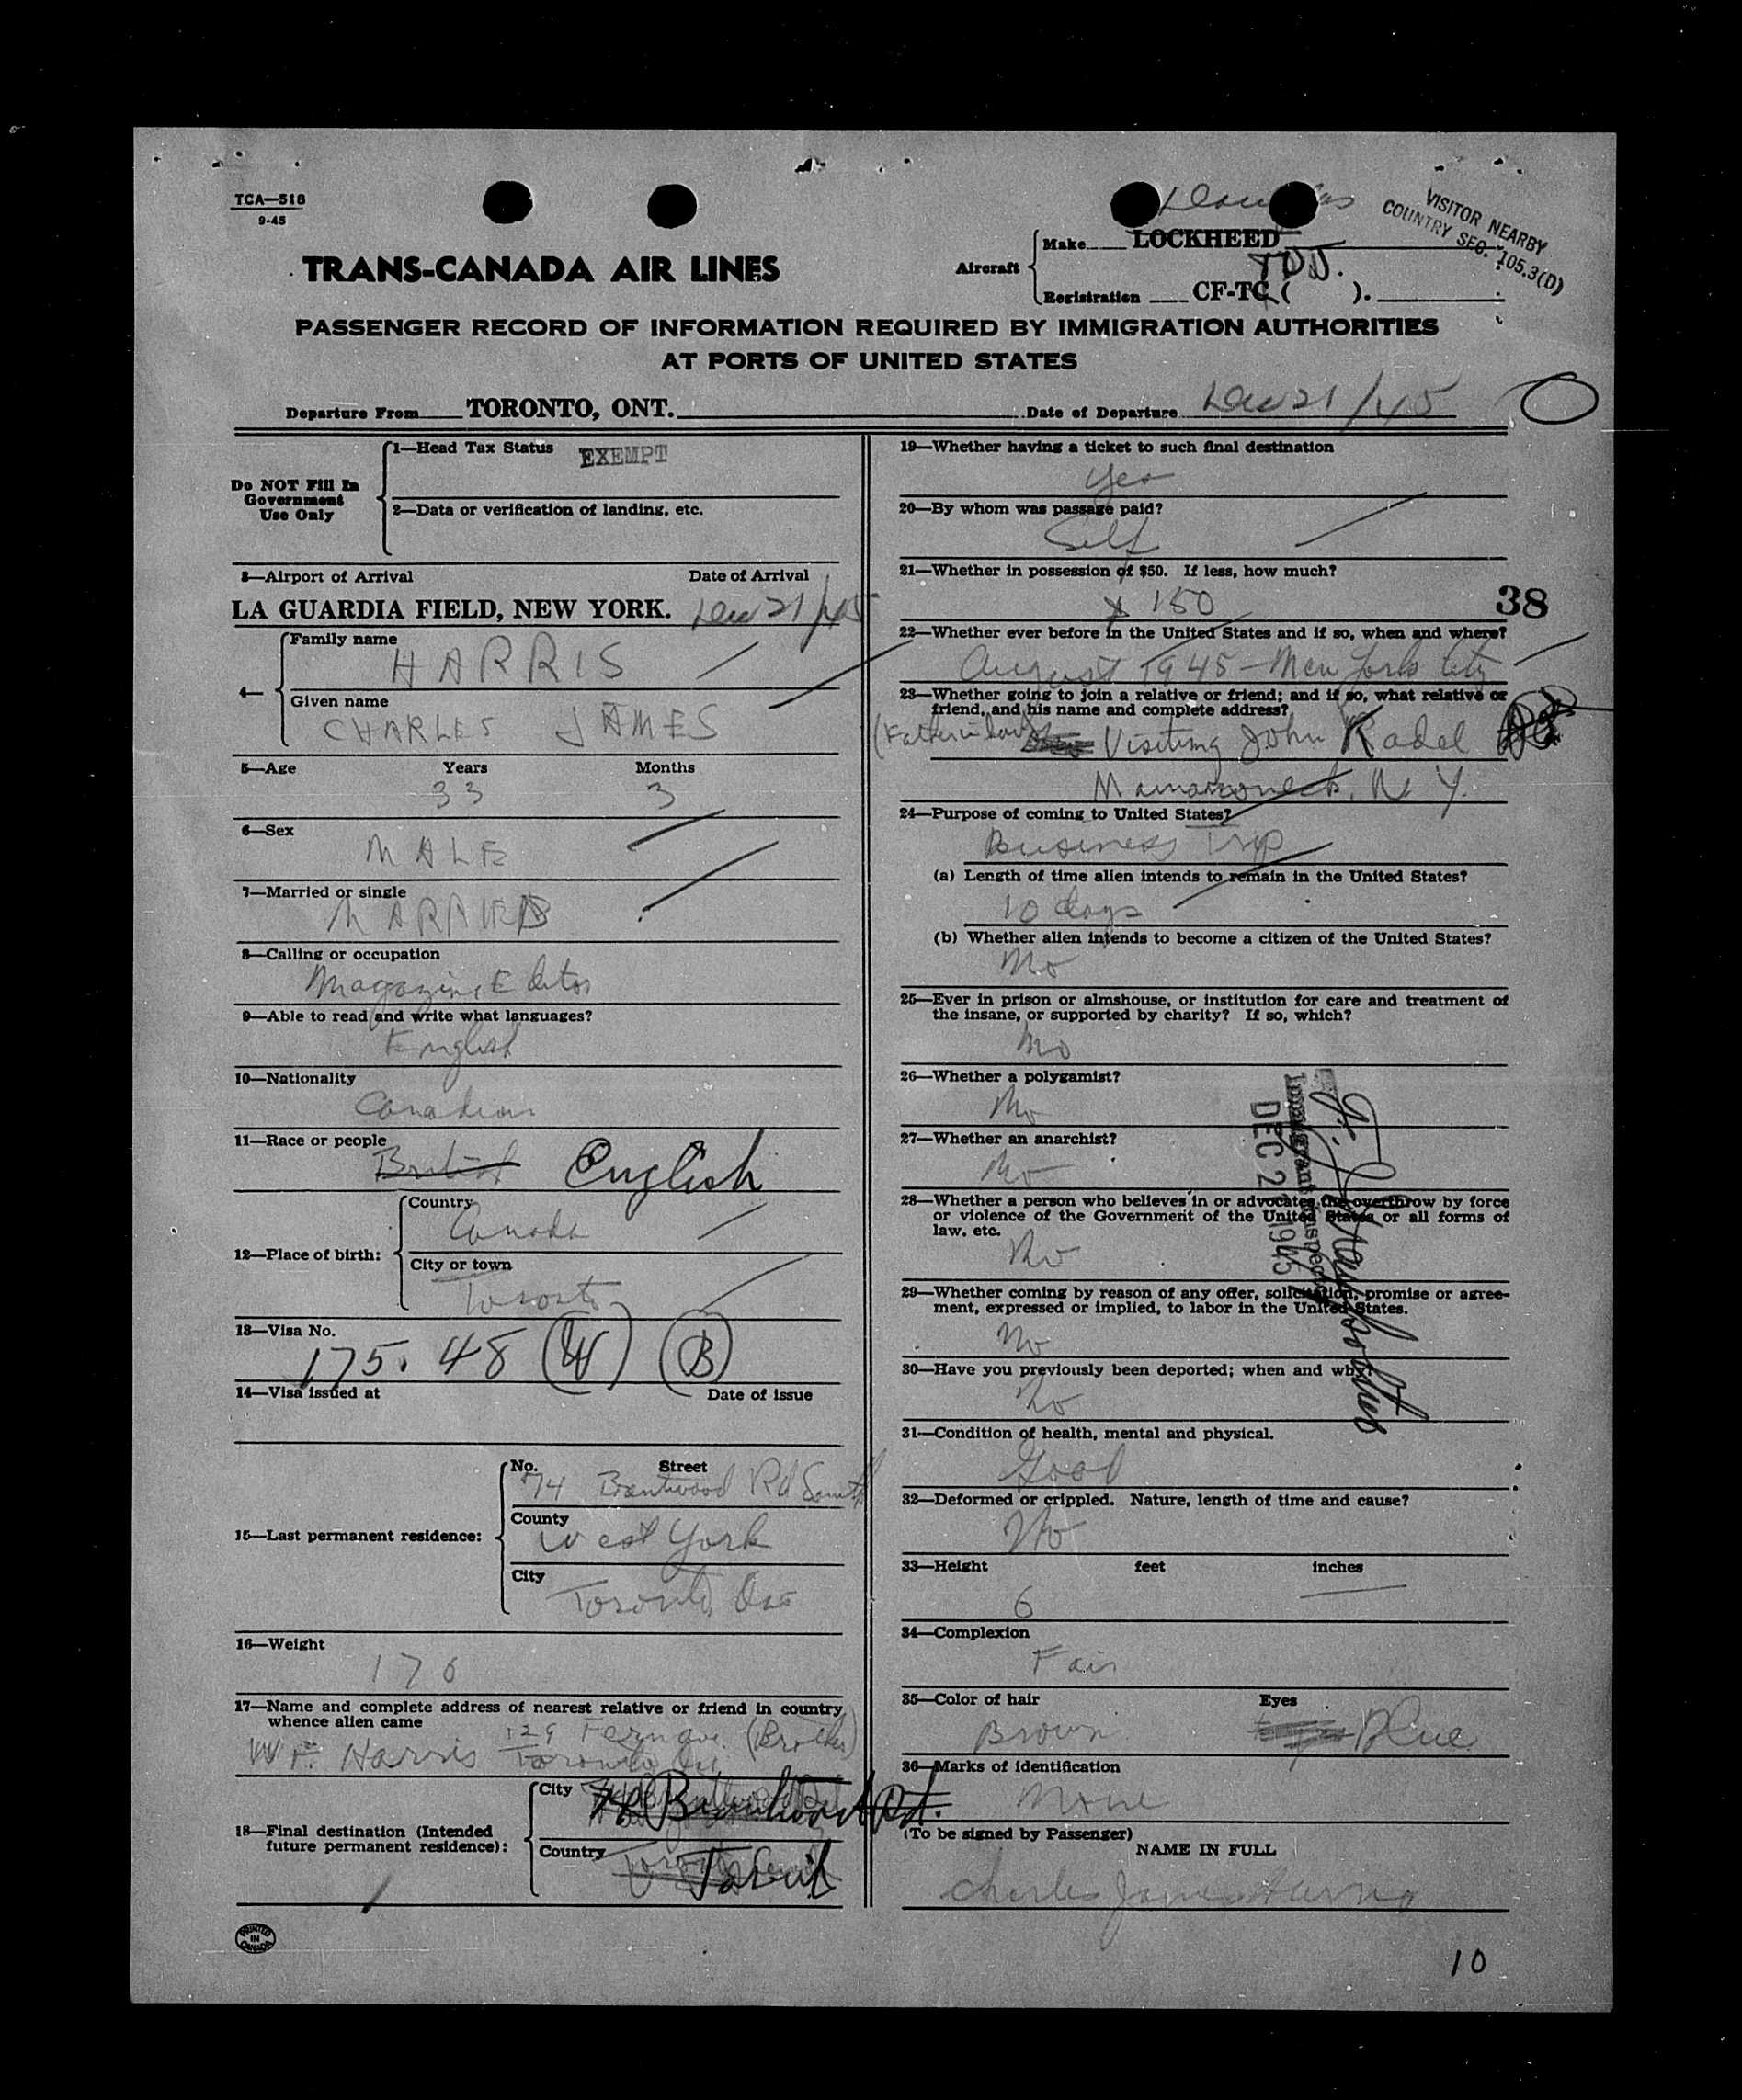 TCA—518
9-45
VISITOR NEARBY
COUNTRY SEC. 105.3(D)
TRANS-CANADA AIR LINES
Aircraft
Make LOCKHEED
Registration CF-TC ( ).
PASSENGER RECORD OF INFORMATION REQUIRED BY IMMIGRATION AUTHORITIES
AT PORTS OF UNITED STATES
Departure From TORONTO, ONT. Date of Departure Dec 21/45
Do NOT Fill In
Government
Use Only
1—Head Tax Status EXEMPT
2—Data or verification of landing, etc.
3—Airport of Arrival Date of Arrival
LA GUARDIA FIELD, NEW YORK. Dec 21/45
4—
Family name
HARRIS
Given name
CHARLES JAMES
5—Age Years Months
33 3
6—Sex
MALE
7—Married or single
MARRIED
8—Calling or occupation
Magazine Editor
9—Able to read and write what languages?
English
10—Nationality
Canadian
11—Race or people
British English
12—Place of birth:
Country
Canada
City or town
Toronto
13—Visa No.
175.48 (W) (B)
14—Visa issued at Date of issue
15—Last permanent residence:
No. Street
74 Brentwood Rd South
County
West York
City
Toronto Ont
16—Weight
176
17—Name and complete address of nearest relative or friend in country
whence alien came
W F. Harris 129 Fern ave. (Brother)
Toronto
18—Final destination (Intended
future permanent residence):
City
Rd.
Country
PRINTED
IN
CANADA
19—Whether having a ticket to such final destination
Yes
20—By whom was passage paid?
Self
21—Whether in possession of $50. If less, how much?
150
38
22—Whether ever before in the United States and if so, when and where?
August 1945 - New York City
23—Whether going to join a relative or friend; and if so, what relative or
friend, and his name and complete address?
(Father in law) Visiting John Radel
Mamaroneck, N Y.
24—Purpose of coming to United States?
Business Trip
(a) Length of time alien intends to remain in the United States?
10 days
(b) Whether alien intends to become a citizen of the United States?
No
25—Ever in prison or almshouse, or institution for care and treatment of
the insane, or supported by charity? If so, which?
No
26—Whether a polygamist?
No
27—Whether an anarchist?
No
28—Whether a person who believes in or advocates the overthrow by force
or violence of the Government of the United States or all forms of
law, etc.
No
29—Whether coming by reason of any offer, solicitation, promise or agree-
ment, expressed or implied, to labor in the United States.
No
30—Have you previously been deported; when and why?
No
DEC 21 1945
Immigrant Inspector
31—Condition of health, mental and physical.
Good
32—Deformed or crippled. Nature, length of time and cause?
No
33—Height feet inches
6
34—Complexion
Fair
35—Color of hair Eyes
Brown Blue
36—Marks of identification
None
(To be signed by Passenger)
NAME IN FULL
Charles James Harris
10